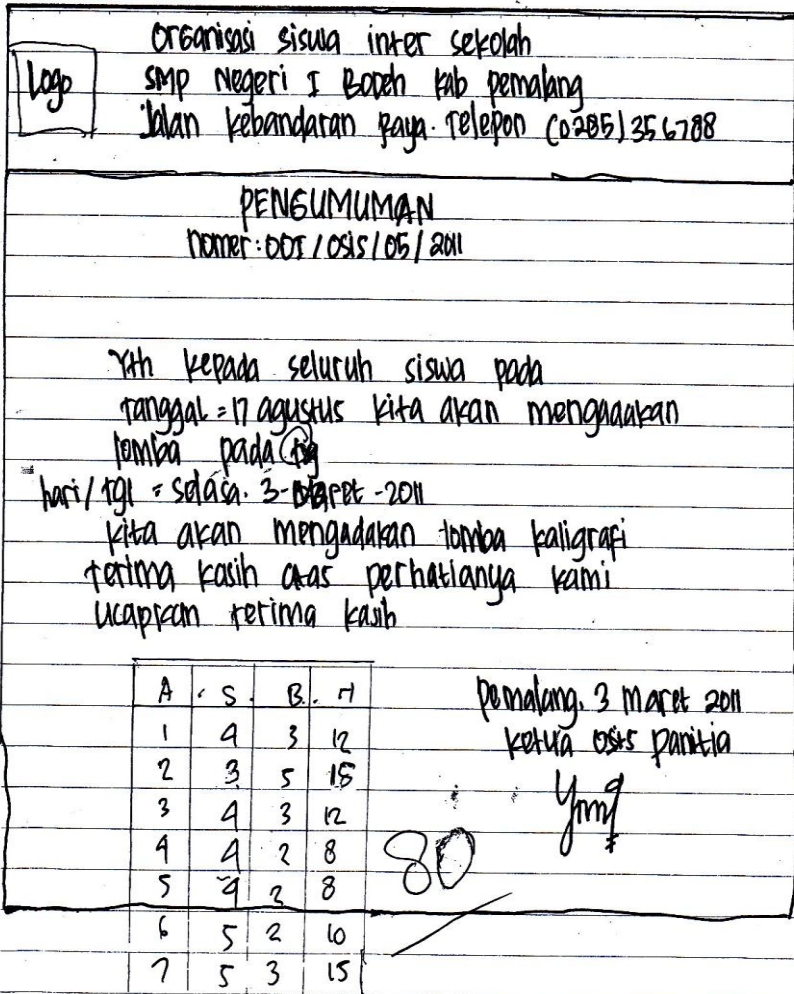 Organisasi siswa inter sekolah
Logo
SMP Negeri I Bodeh kab pemalang
Jalan kebandaran Raya. Telepon (0285) 356788
PENGUMUMAN
nomer : 001 / osis / 05 / 2011
Yth kepada seluruh siswa pada
Tanggal = 17 agustus kita akan mengadakan
lomba pada
hari / tgl = selasa. 3-Maret-2011
kita akan mengadakan lomba kaligrafi
terima kasih atas perhatianya kami
ucapkan terima kasih
A S B H
1 4 3 12
2 3 5 15
3 4 3 12
4 4 2 8
5 4 2 8
6 5 2 10
7 5 3 15
pemalang. 3 Maret 2011
ketua osis panitia
80